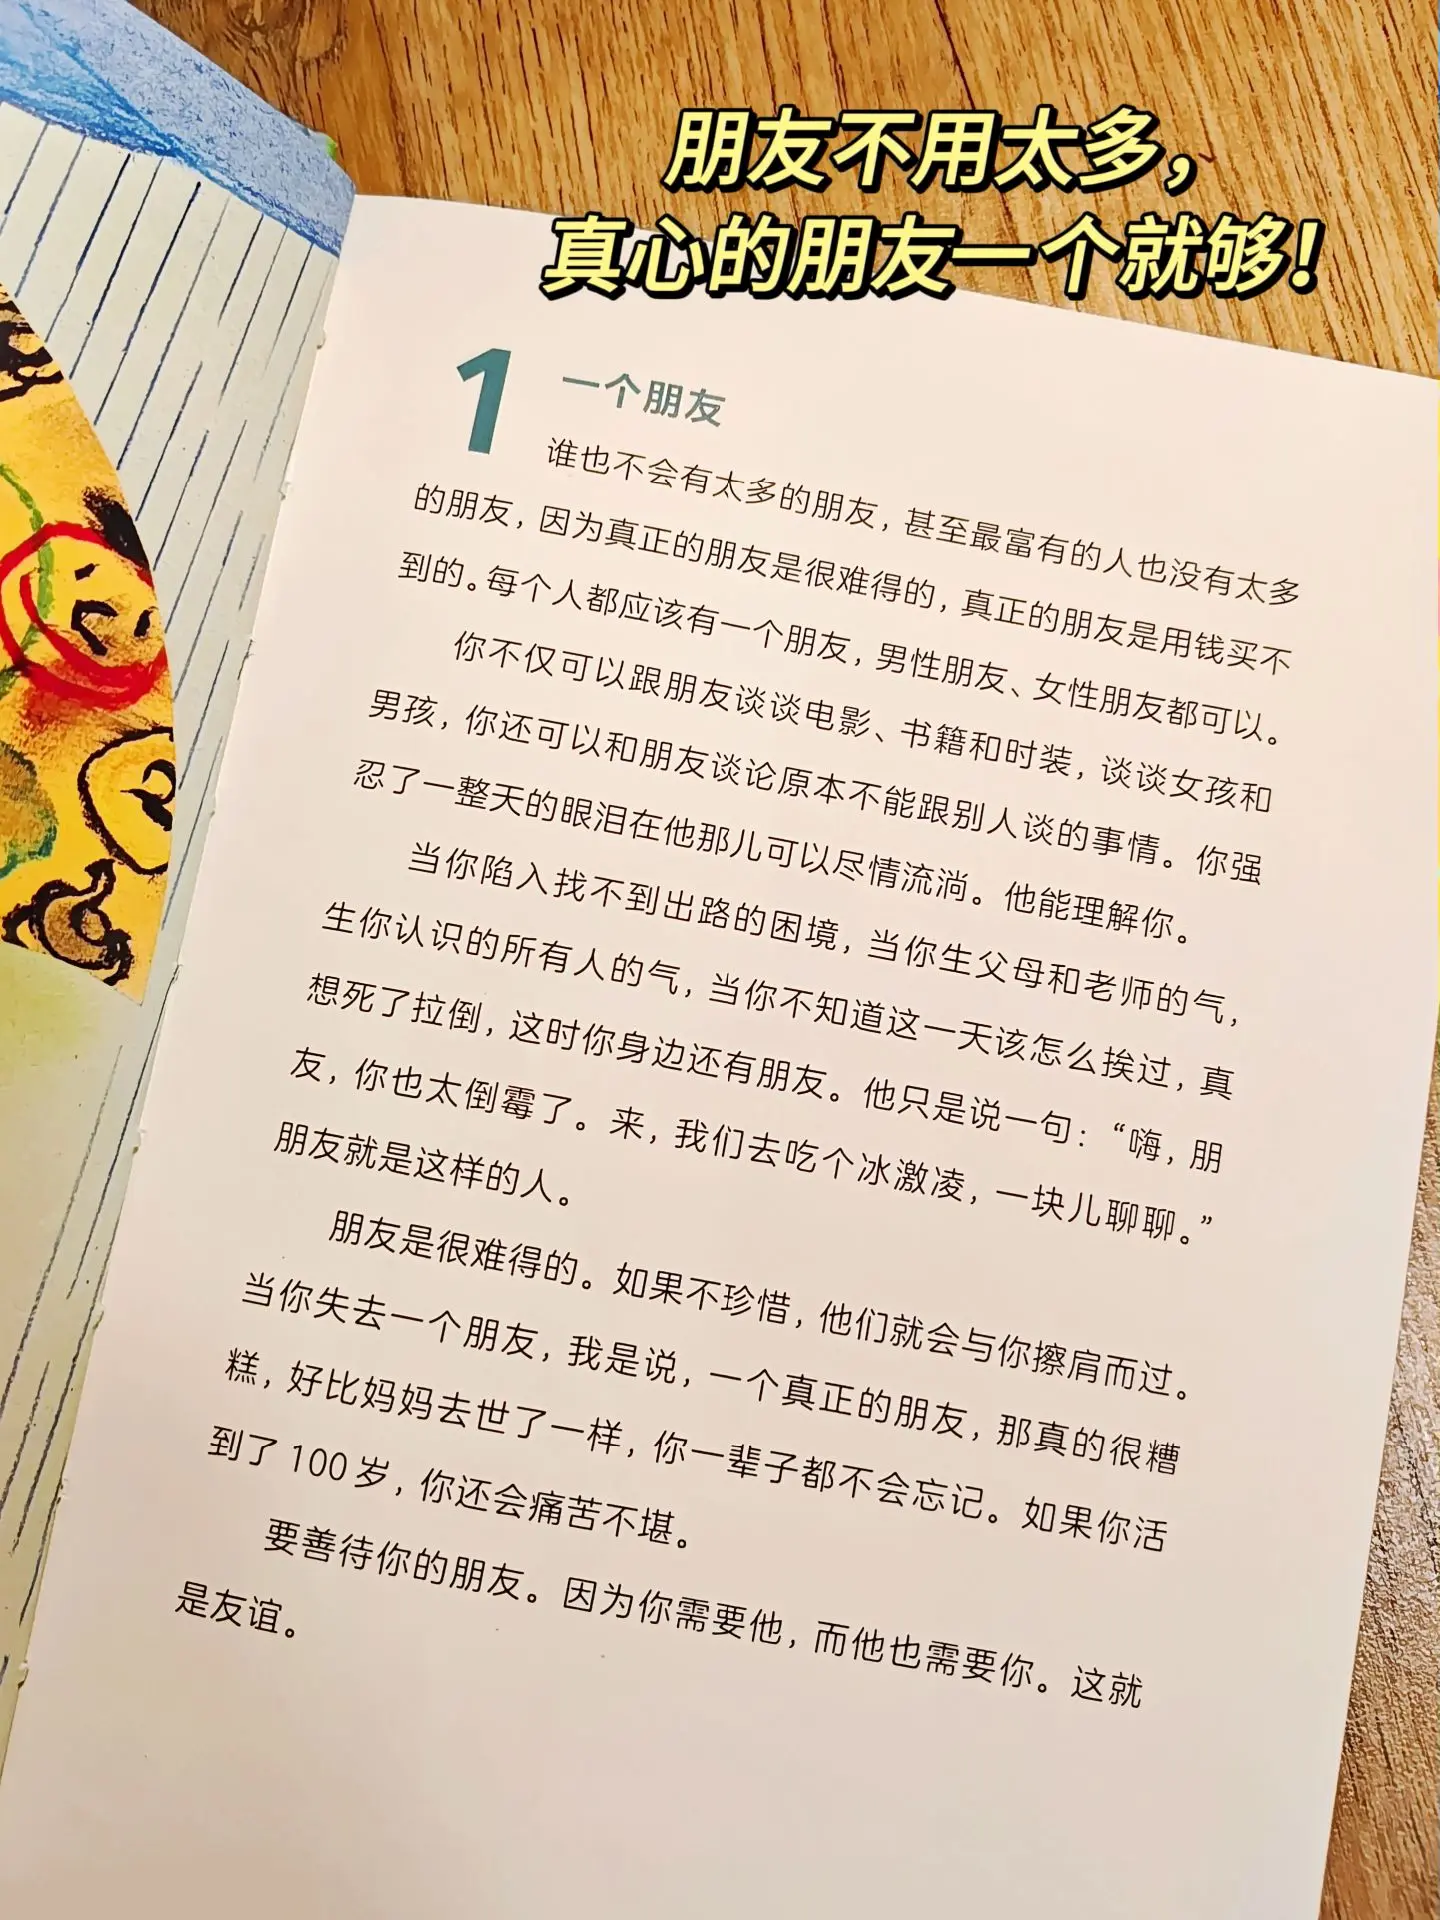 朋友不用太多，
真心的朋友一个就够！
1
一个朋友
谁也不会有太多的朋友，甚至最富有的人也没有太多
的朋友，因为真正的朋友是很难得的，真正的朋友是用钱买不
到的。每个人都应该有一个朋友，男性朋友、女性朋友都可以。
你不仅可以跟朋友谈谈电影、书籍和时装，谈谈女孩和
男孩，你还可以和朋友谈论原本不能跟别人谈的事情。你强
忍了一整天的眼泪在他那儿可以尽情流淌。他能理解你。
当你陷入找不到出路的困境，当你生父母和老师的气，
生你认识的所有人的气，当你不知道这一天该怎么挨过，真
想死了拉倒，这时你身边还有朋友。他只是说一句：“嗨，朋
友，你也太倒霉了。来，我们去吃个冰激凌，一块儿聊聊。”
朋友就是这样的人。
朋友是很难得的。如果不珍惜，他们就会与你擦肩而过。
当你失去一个朋友，我是说，一个真正的朋友，那真的很糟
糕，好比妈妈去世了一样，你一辈子都不会忘记。如果你活
到了100岁，你还会痛苦不堪。
要善待你的朋友。因为你需要他，而他也需要你。这就
是友谊。